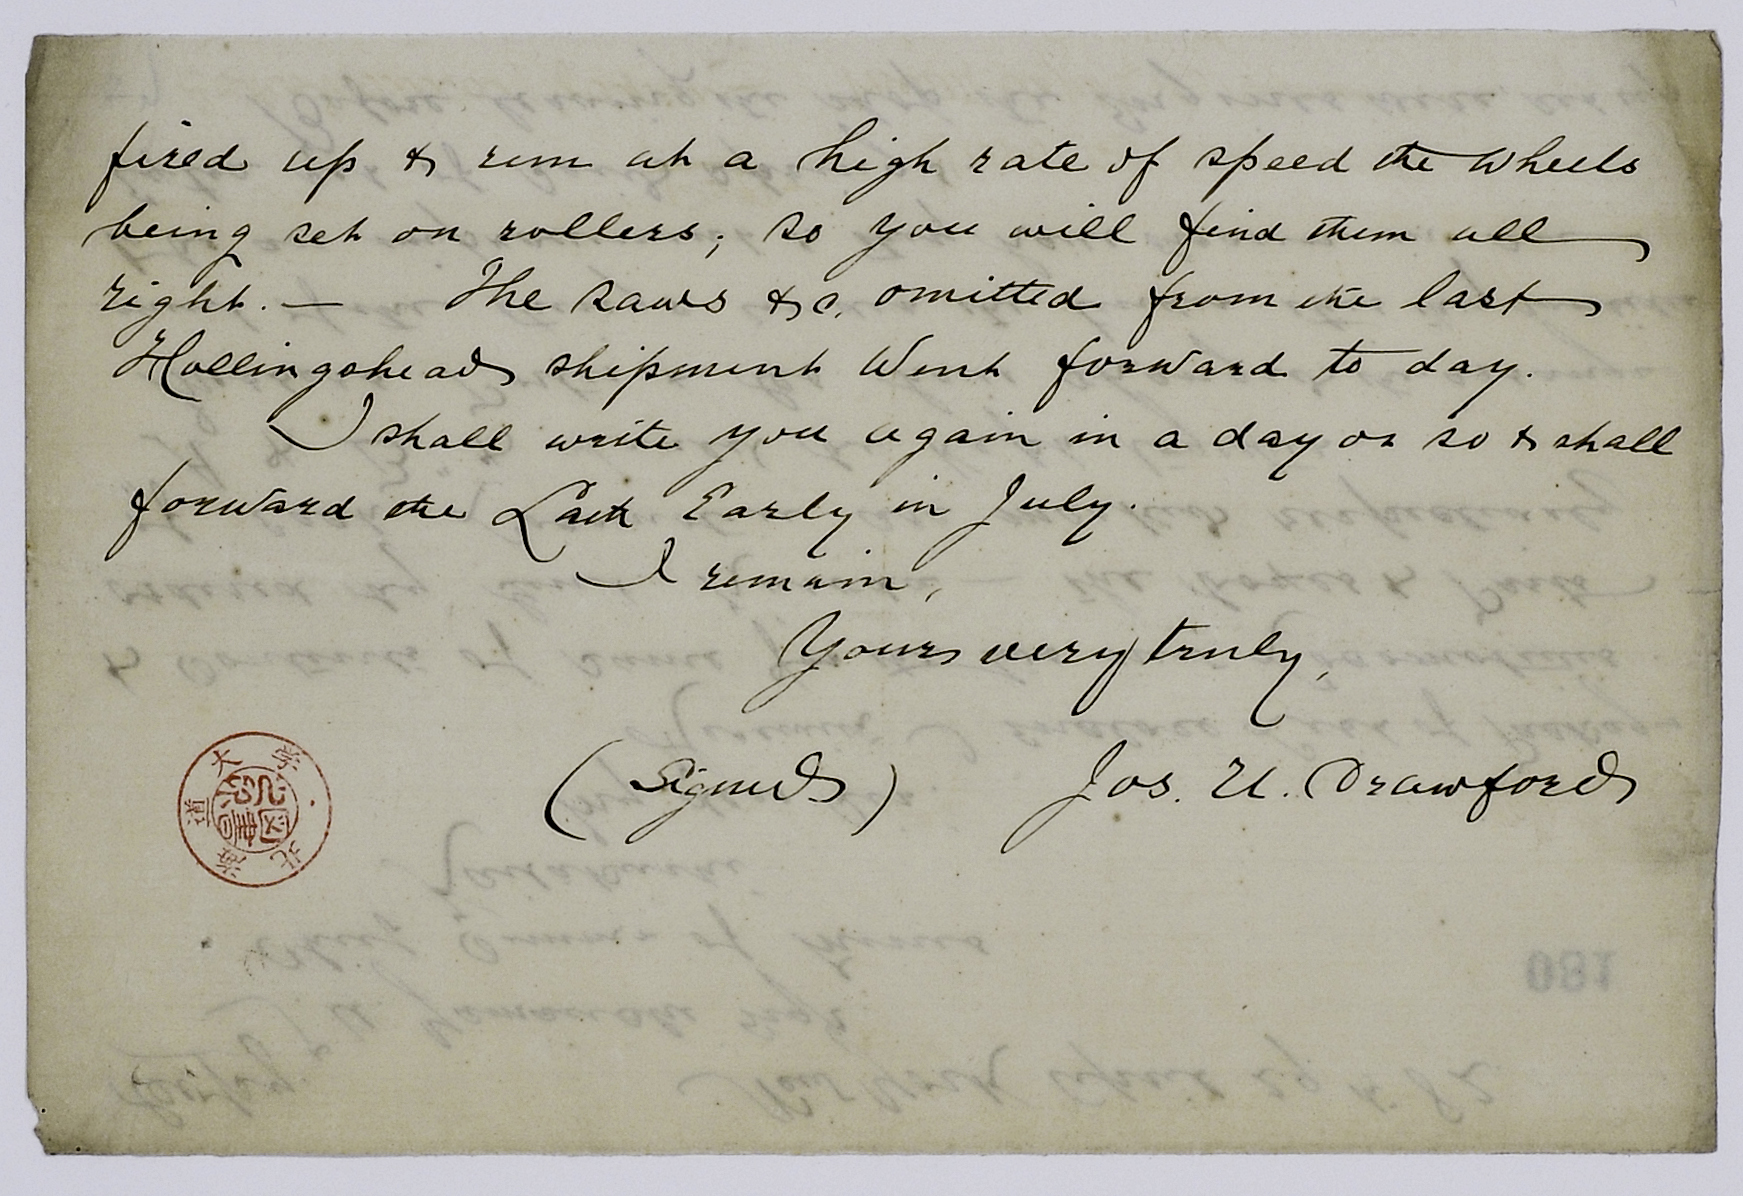 fired up & run at a high rate of speed the wheels
being set on rollers; so you will find them all
right. — The saws &c. omitted from the last
Hollingshead shipment Went forward to day.
I shall write you again in a day or so & shall
forward the Early in July.
I remain,
Yours very truly,
(Signed) Jos. U. Crawford
大學
北海道